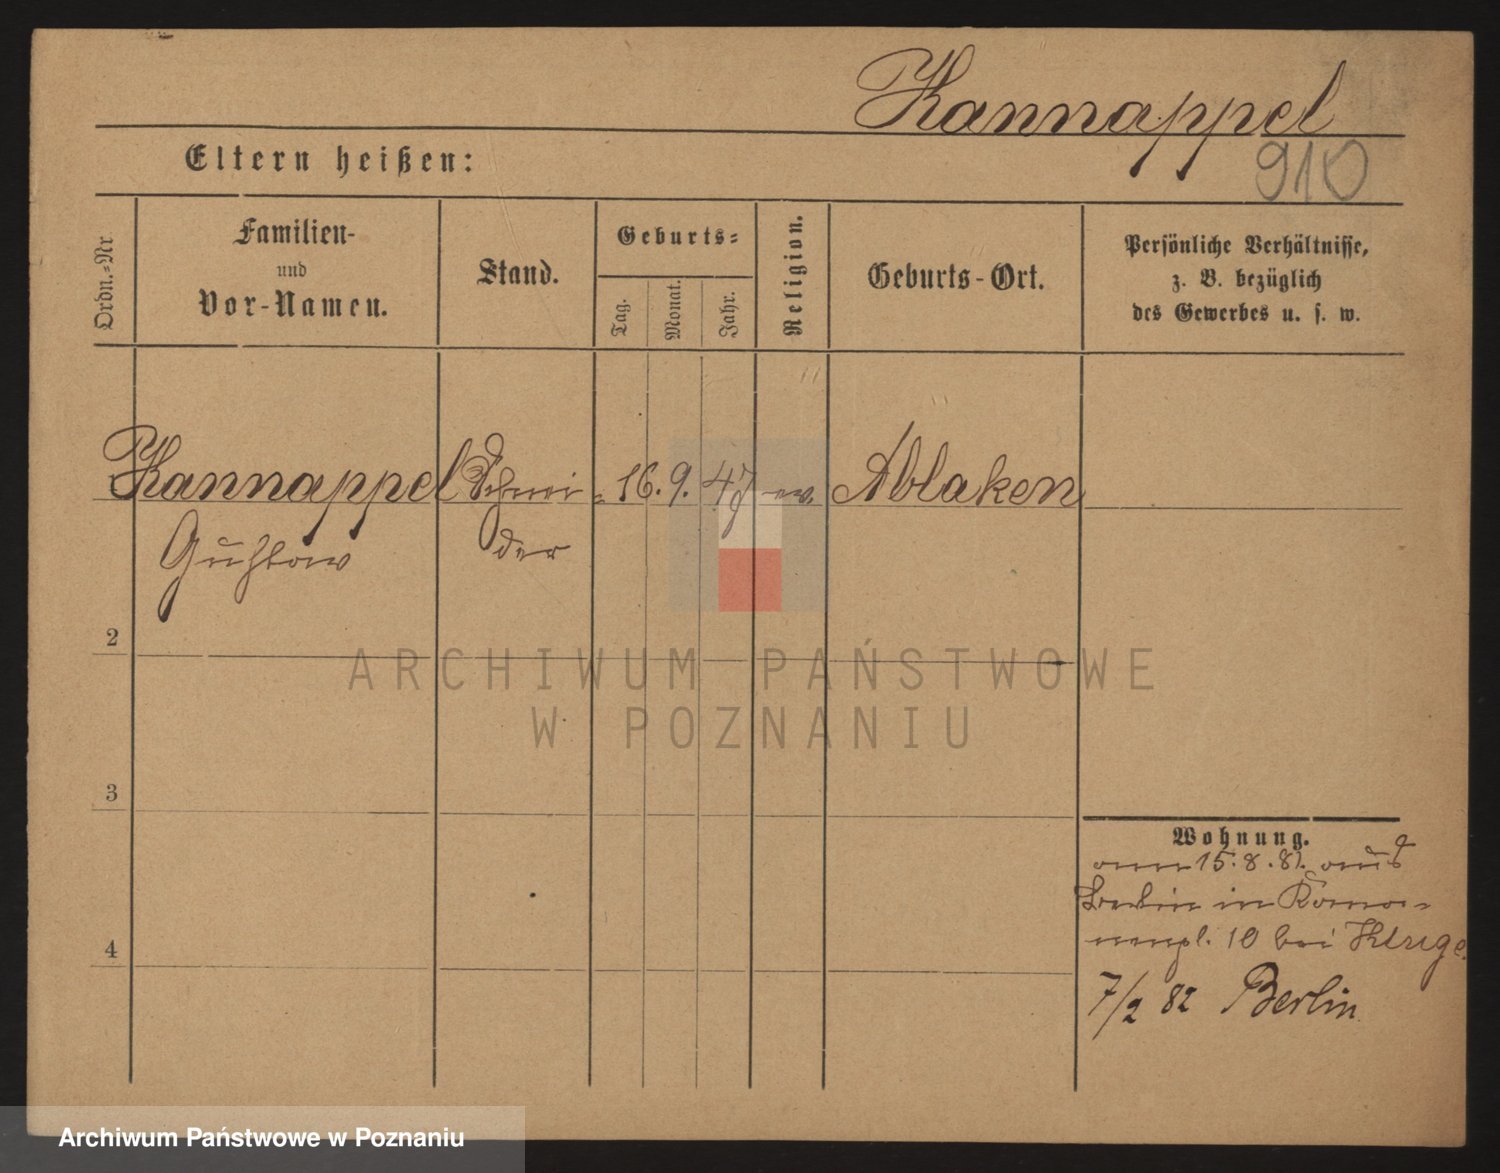 Kannappel
910
Eltern heißen:
Ordn.=Nr
Familien-
und
Vor-Namen.
Stand.
Geburts=
Tag.
Monat.
Jahr.
Religion.
Geburts-Ort.
Persönliche Verhältnisse,
z. B. bezüglich
des Gewerbes u. s. w.
Kannappel Schnei= 16. 9. 47 ev. Ablaken
Gustav der
2
3
4
Wohnung.
am 15.8.81. aus
Berlin in
10 bei Kluge.
7/2 82 Berlin
ARCHIWUM PAŃSTWOWE
W POZNANIU
Archiwum Państwowe w Poznaniu